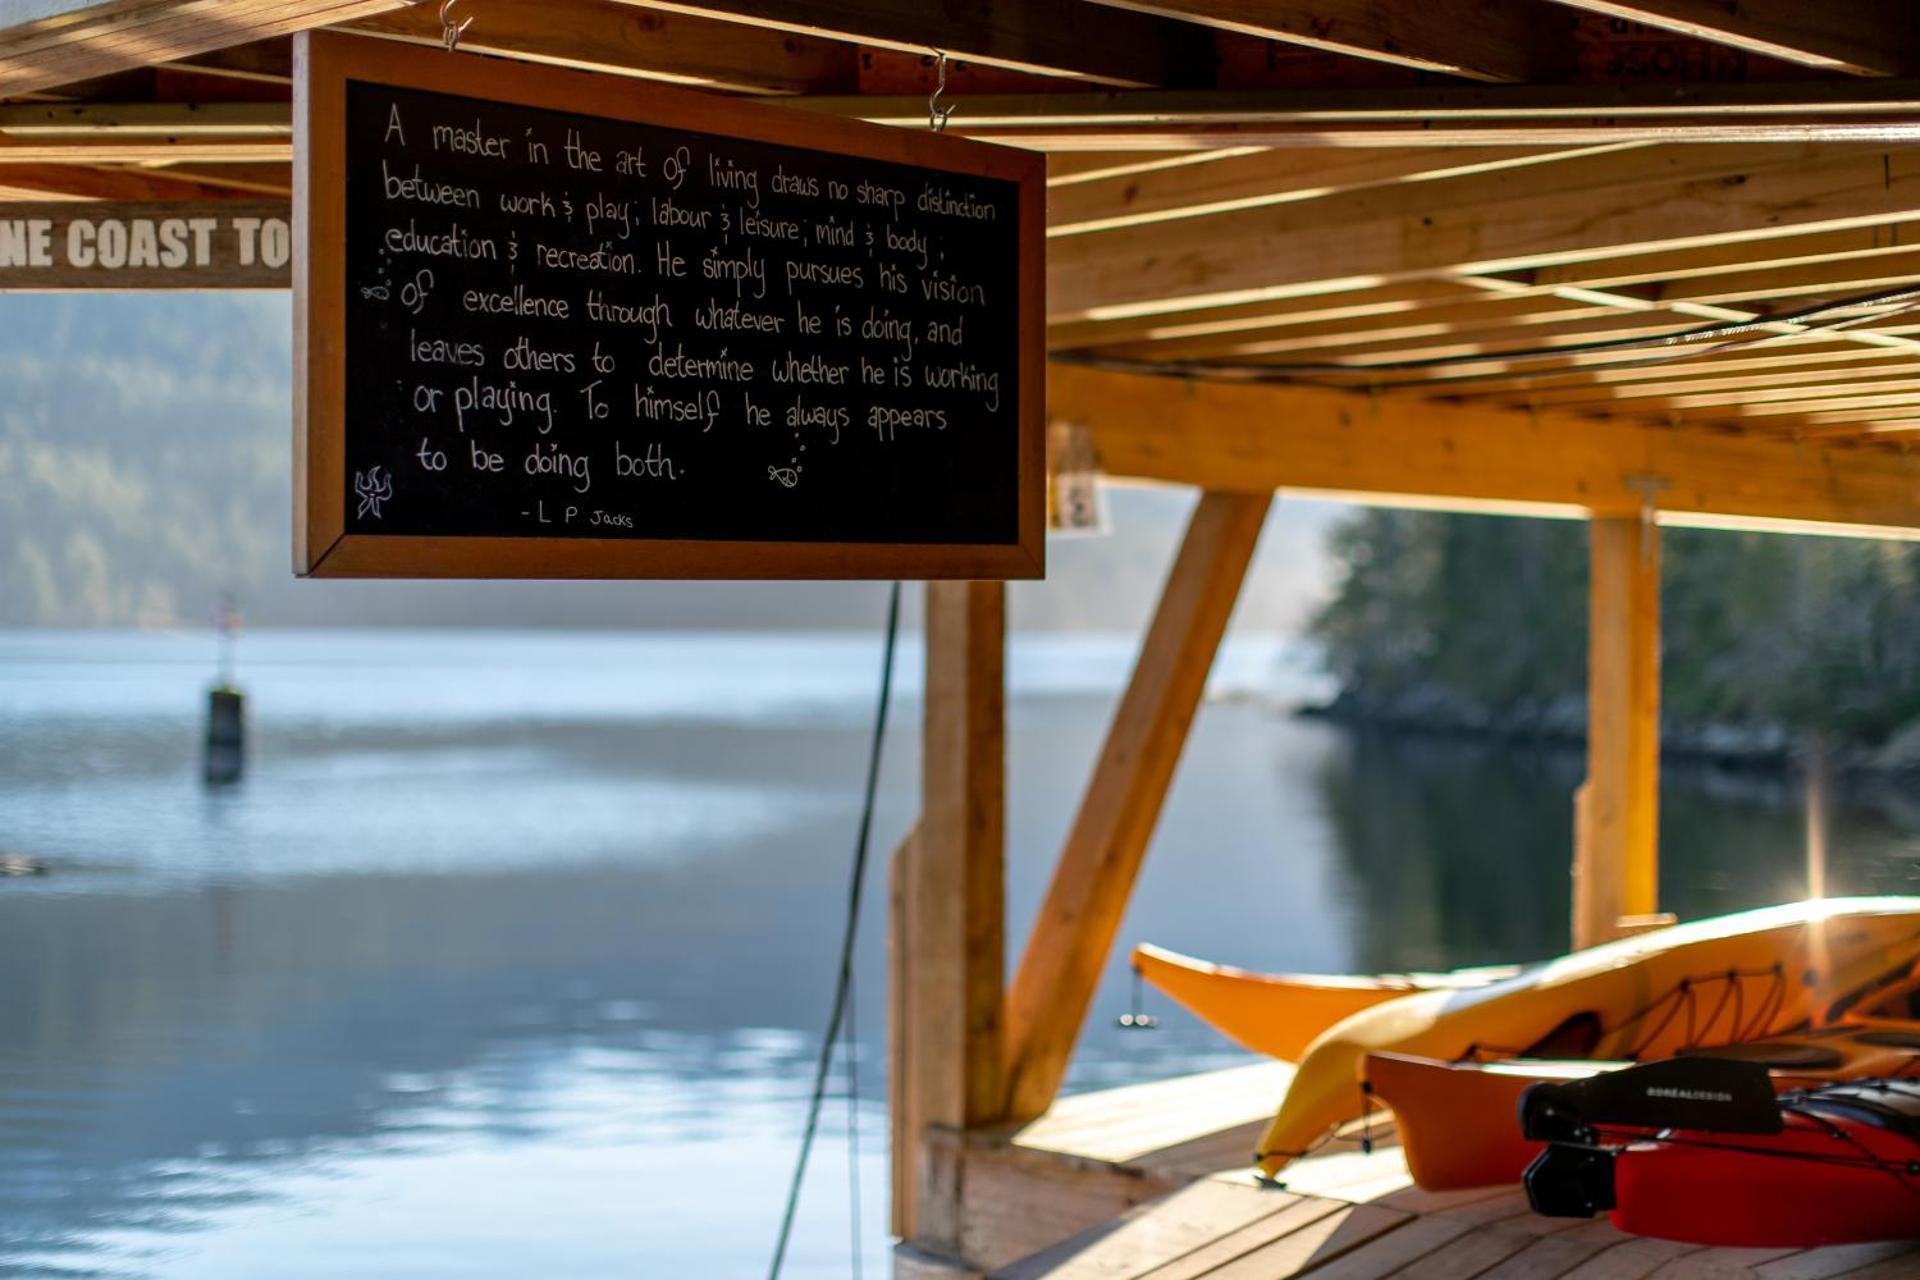 A master in the art of living draws no sharp distinction
between work & play; labour & leisure; mind & body;
education & recreation. He simply pursues his vision
of excellence through whatever he is doing, and
leaves others to determine whether he is working
or playing. To himself he always appears
to be doing both.
- L P Jacks
NE COAST TO
BOREALDESIGN